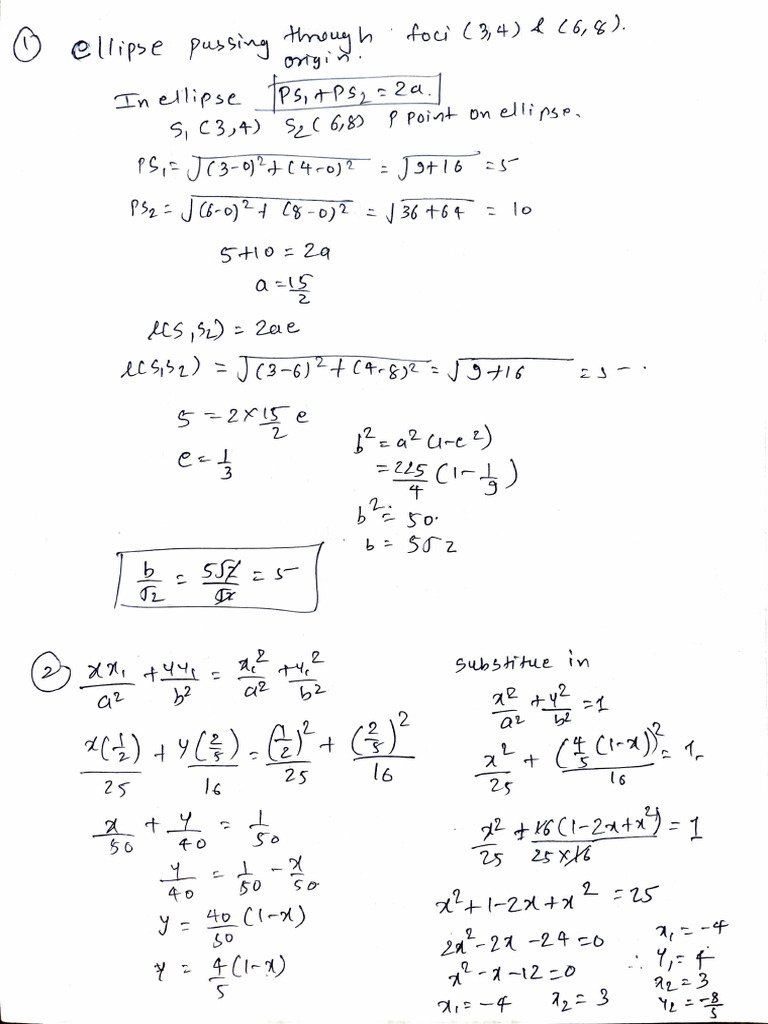 ① ellipse passing through foci (3,4) & (6,8).
origin.
In ellipse PS₁+PS₂=2a.
S₁(3,4) S₂(6,8) P point on ellipse.
PS₁=√(3-0)²+(4-0)² = √9+16 =5
PS₂=√(6-0)²+(8-0)² = √36+64 = 10
5+10=2a
a=15/2
l(S,S₂)=2ae
l(S₁S₂) = √(3-6)²+(4-8)² = √9+16 =5
5=2×15/2 e
e=1/3
b²=a²(1-e²)
=225/4 (1-1/9)
b²=50.
b=5√2
b/√2 = 5√2/√2 = 5
② xx₁/a² + yy₁/b² = x₁²/a² + y₁²/b²
x(1/2)/25 + y(2/5)/16 = (1/2)²/25 + (2/5)²/16
x/50 + y/40 = 1/50
y/40 = 1/50 - x/50.
y = 40/50 (1-x)
y = 4/5 (1-x)
substitue in
x²/a² + y²/b² =1
x²/25 + (4/5 (1-x))²/16 = 1.
x²/25 + 16(1-2x+x²)/25×16 = 1
x²+1-2x+x² = 25
2x²-2x-24=0
x²-x-12=0
x₁=-4 x₂=3
x₁=-4
∴ y₁=4
x₂=3
y₂=-8/5